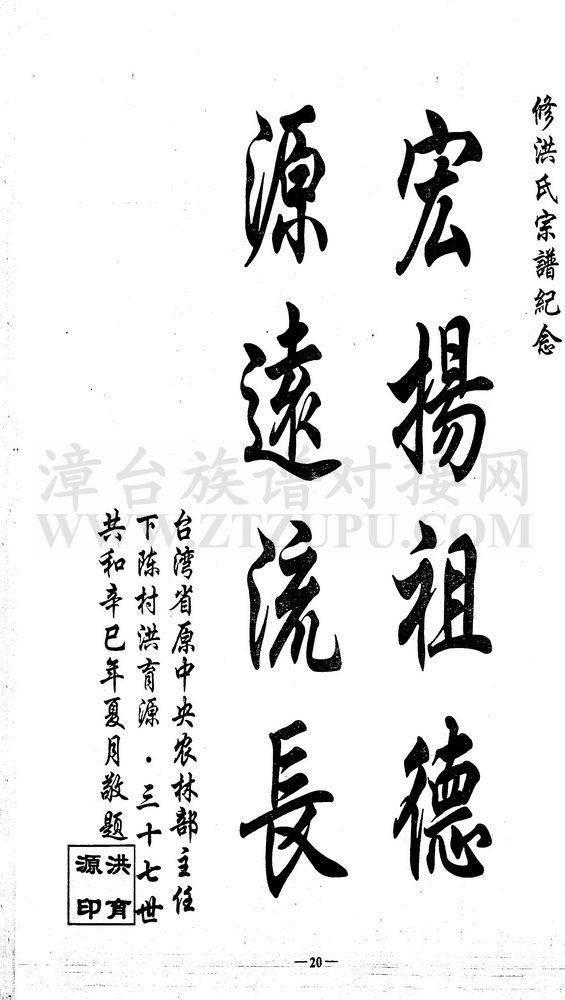 修洪氏宗譜紀念
宏揚祖德
源遠流長
台湾省原中央农林部主任
下陈村洪育源·三十七世
共和辛巳年夏月敬題
洪育
源印
漳台族谱对接网
WWW.ZTZUPU.COM
—20—